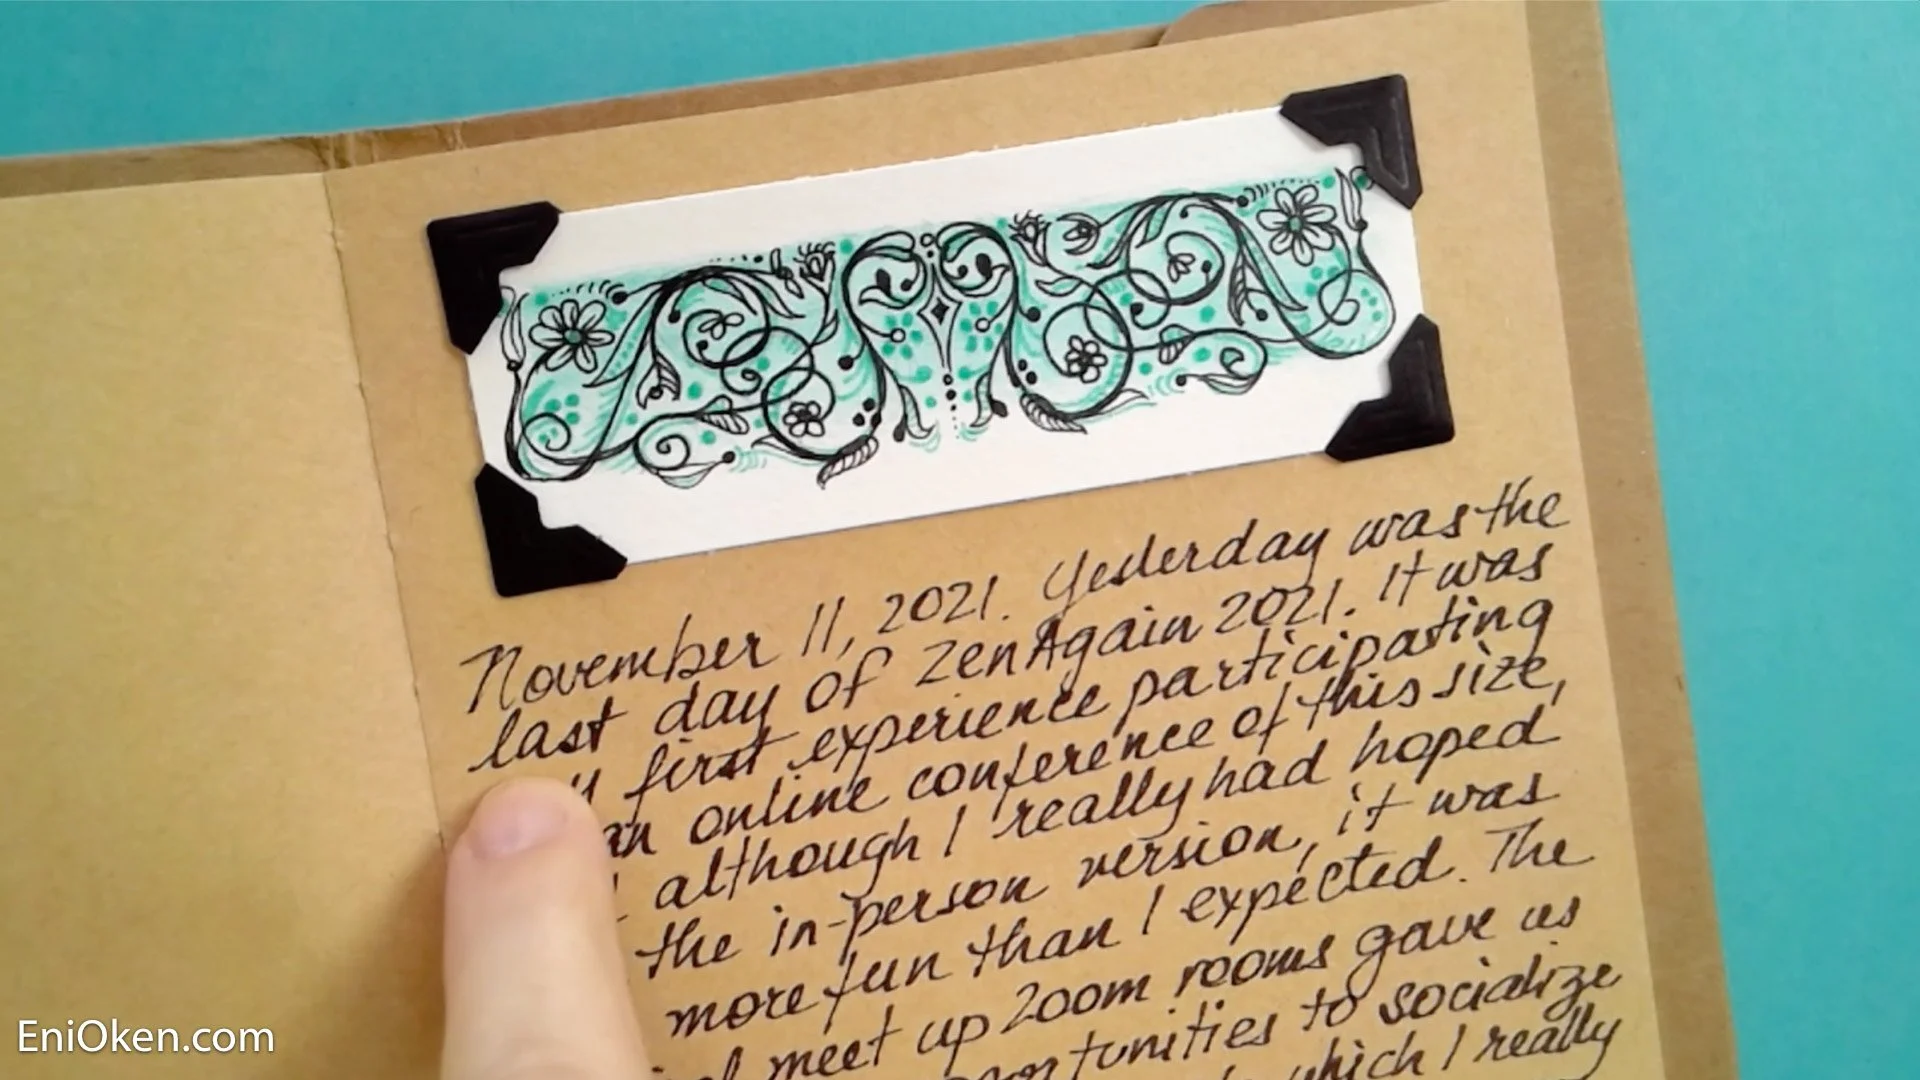 November 11, 2021. Yesterday was the
last day of ZenAgain 2021. It was
first experience participating
an online conference of this size,
although I really had hoped
the in-person version, it was
more fun than I expected. The
meet up zoom rooms gave us
to socialize
which I really
EniOken.com